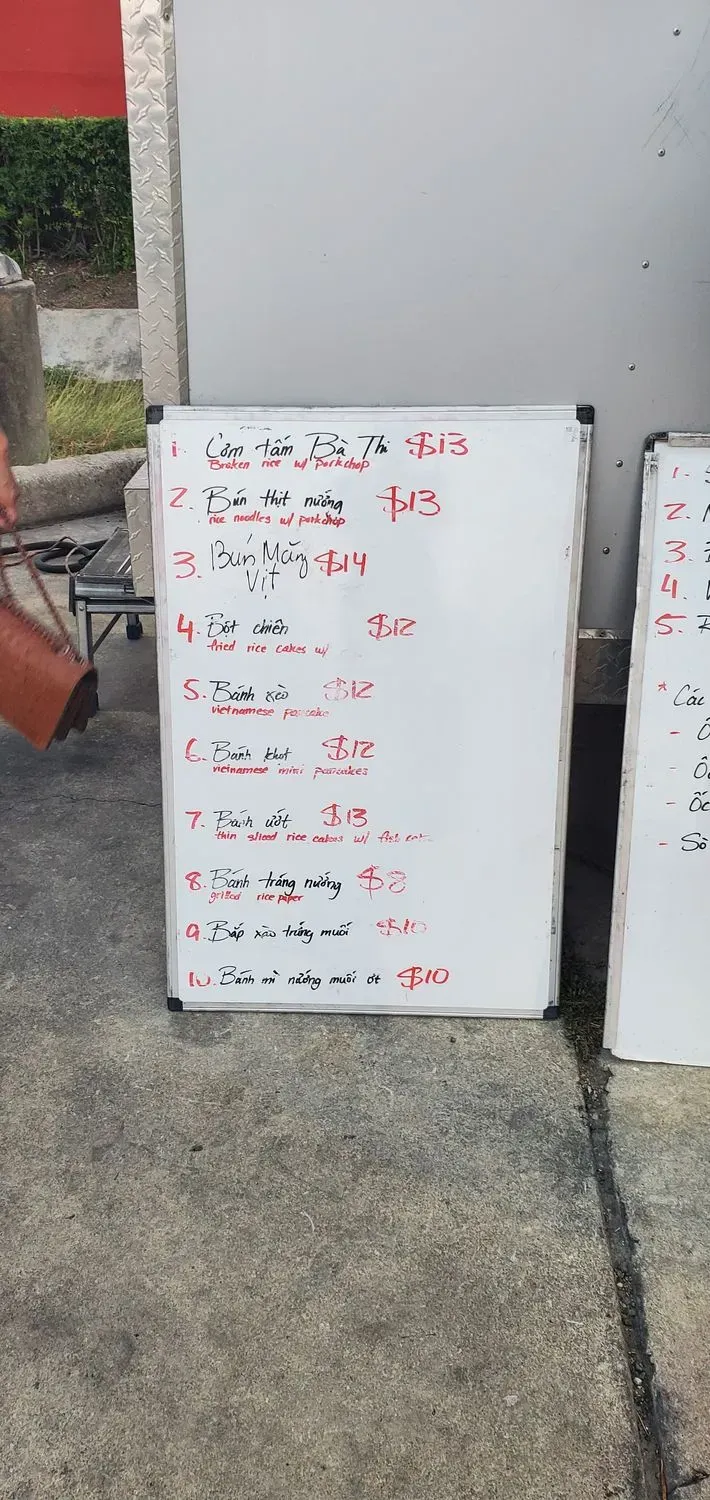 1. Cơm tấm Bà Thi $13
Broken rice w/ porkchop
2. Bún thịt nướng $13
rice noodles w/ porkchop
3. Bún Măng $14
Vịt
4. Bột chiên $12
fried rice cakes w/
5. Bánh xèo $12
vietnamese pancake
6. Bánh khọt $12
vietnamese mini pancakes
7. Bánh ướt $13
thin sliced rice cakes w/ fish
8. Bánh tráng nướng $8
grilled rice paper
9. Bắp xào trứng muối $10
10. Bánh mì nướng muối ớt $10
1.
2.
3.
4.
5.
* Các
-
- Ố
- Ốc
- Sò